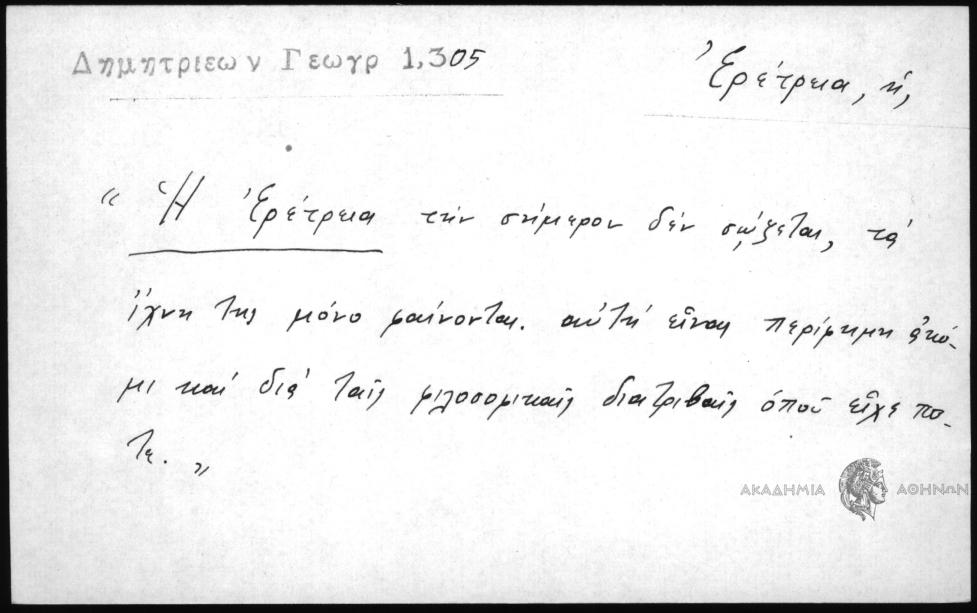 Δημητριεων Γεωγρ 1,305
Ἐρέτρεια, ἡ,
“ Ἡ Ἐρέτρεια τὴν σήμερον δέν σῴζεται, τὰ
ἴχνη της μόνο φαίνονται. αὐτή εἶναι περίφημη ἀκό-
μι καί διὰ ταῖς φιλοσοφικαῖς διατριβαῖς ὁποῦ εἶχε πο-
τε. „
ΑΚΑΔΗΜΙΑ ΑΘΗΝΩΝ